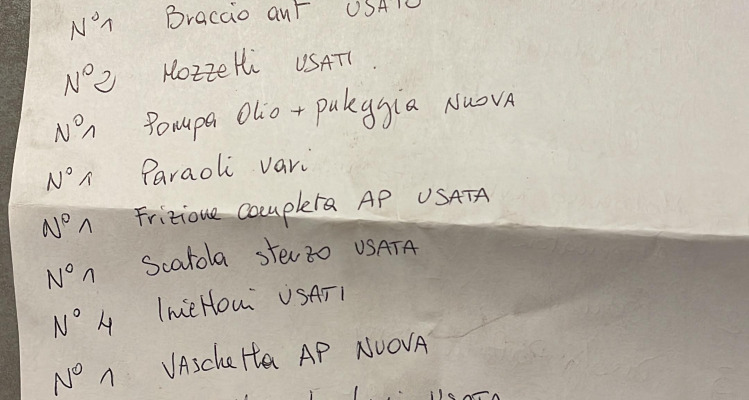 N°1 Braccio ant USATO
N°2 Mozzetti USATI.
N°1 Pompa Olio + puleggia NUOVA
N°1 Paraoli vari
N°1 Frizione completa AP USATA
N°1 Scatola sterzo USATA
N°4 Iniettori USATI
N°1 VAschetta AP NUOVA
USATA